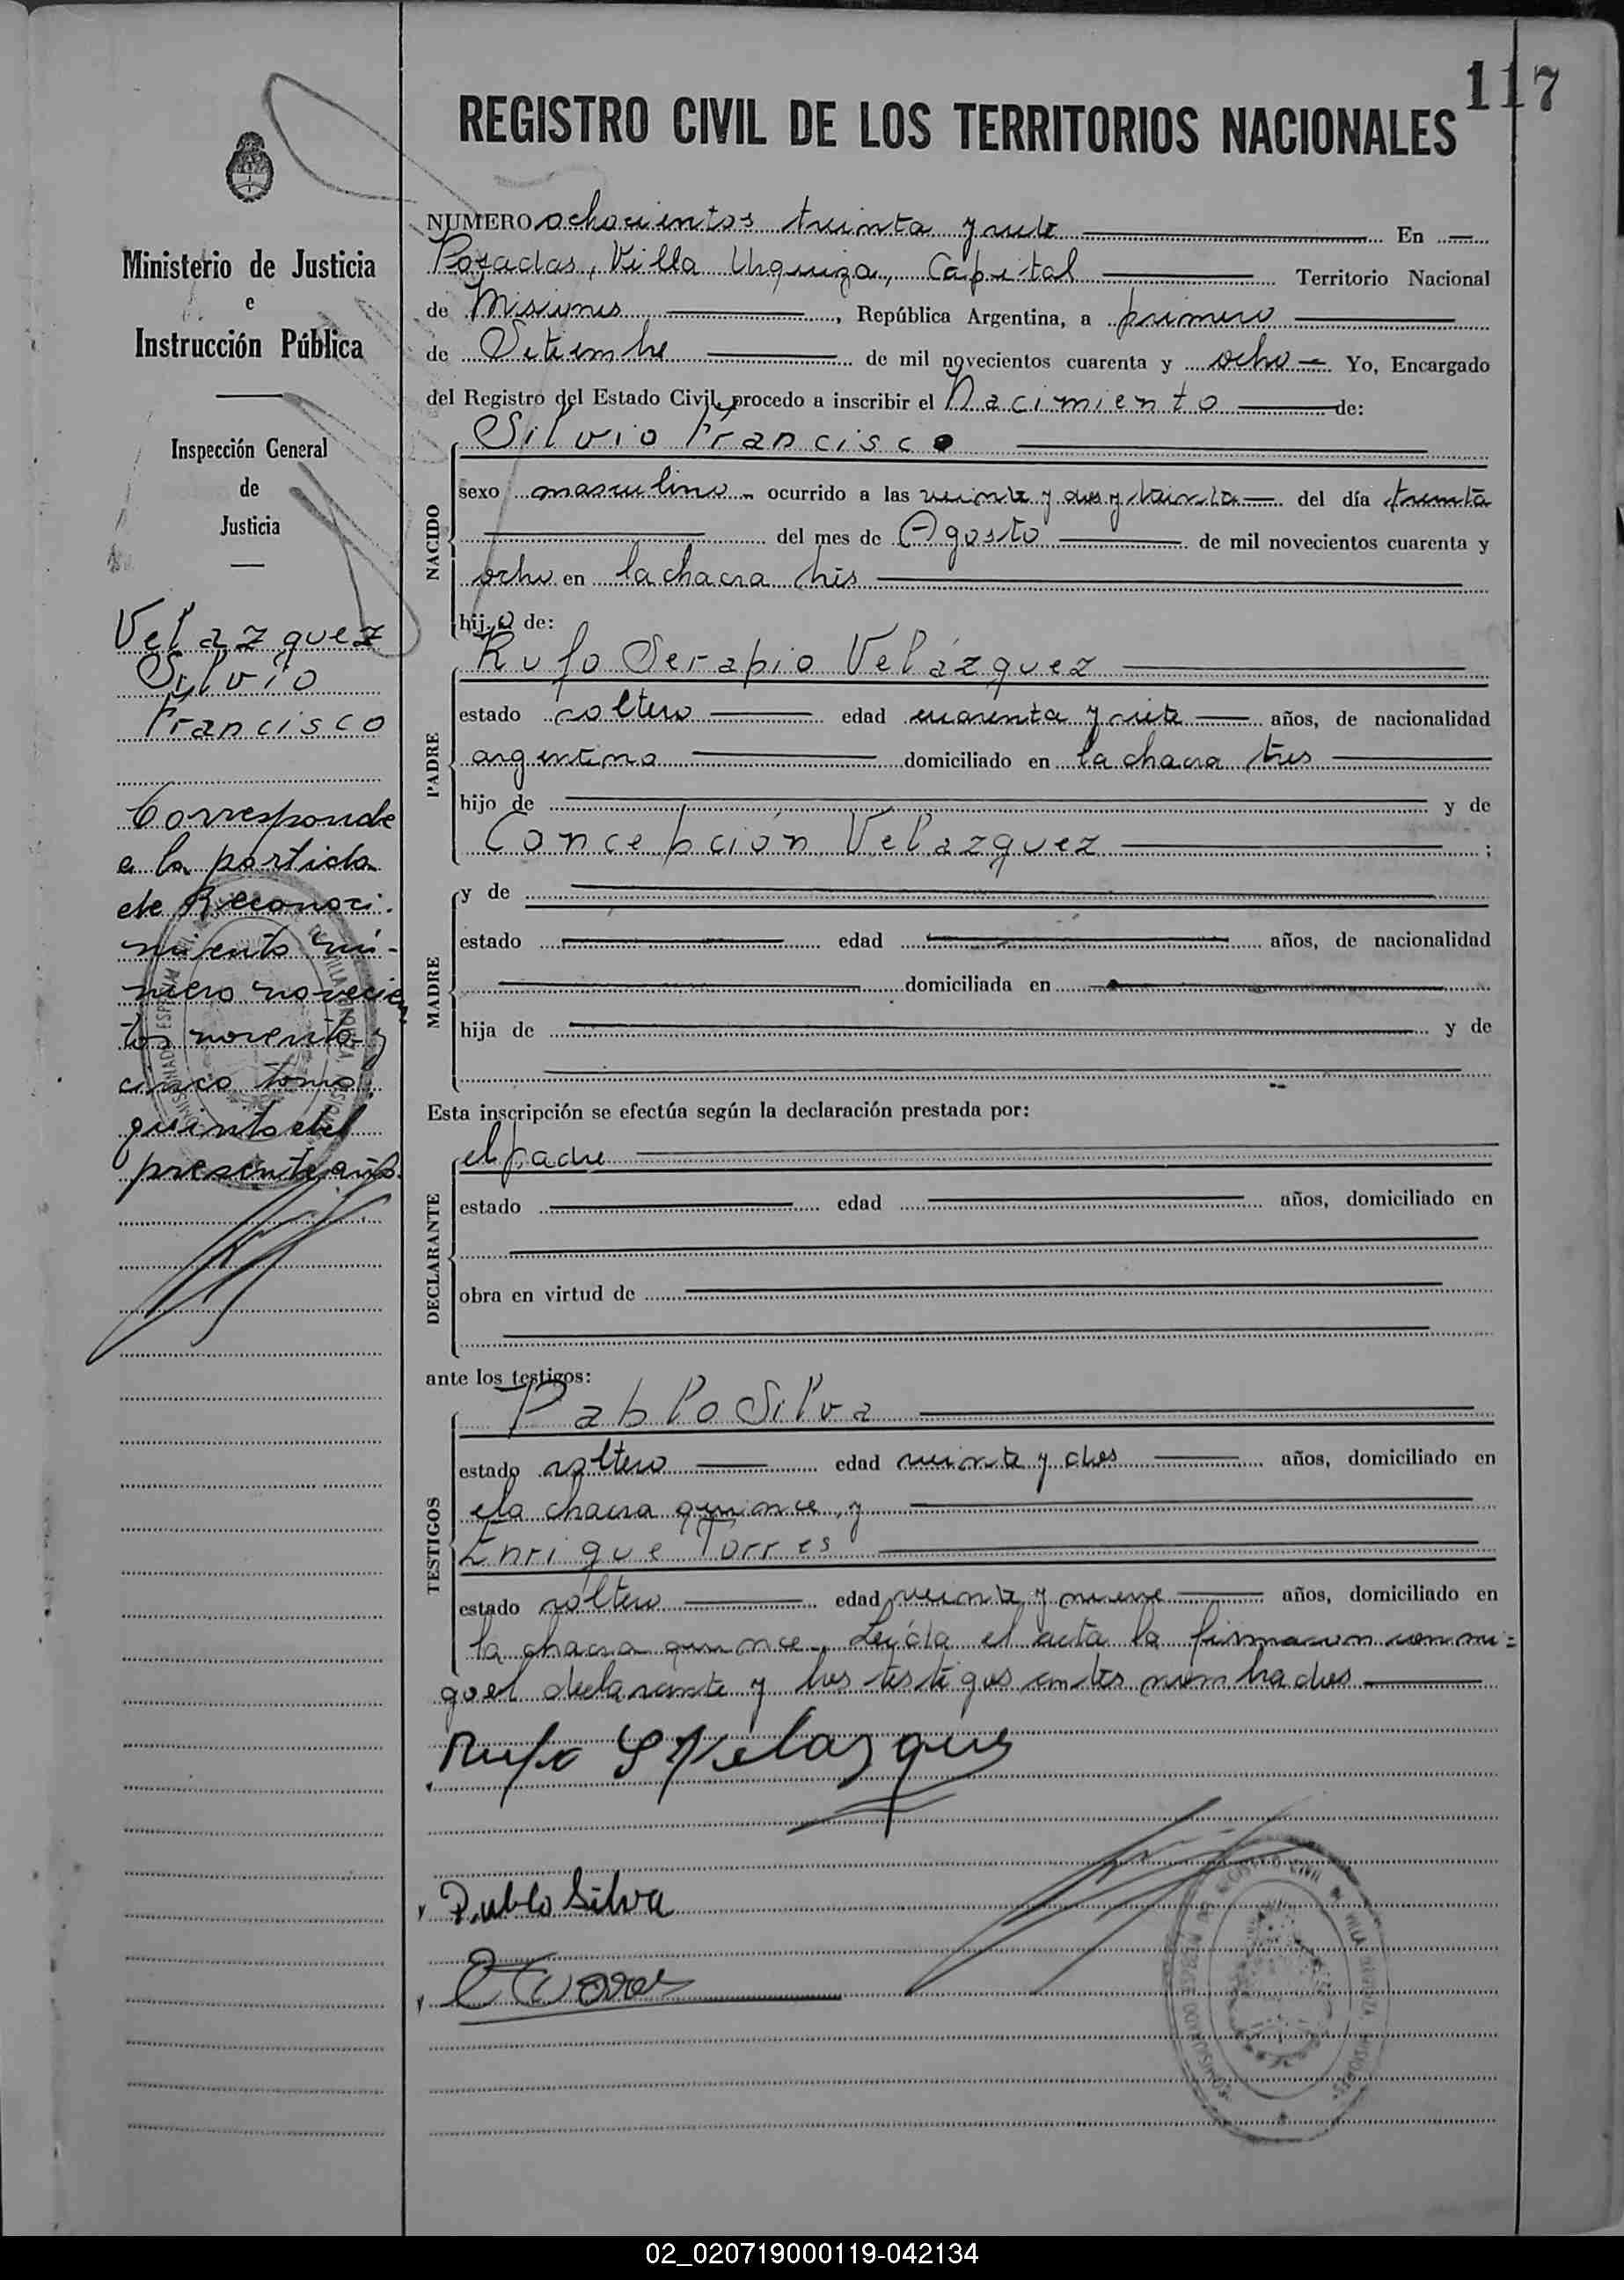 117
REGISTRO CIVIL DE LOS TERRITORIOS NACIONALES
Ministerio de Justicia
e
Instrucción Pública
Inspección General
de
Justicia
Velazquez
Silvio
Francisco
Corresponde
a la partida
de Reconoci-
miento nú-
mero novecien
tos noventa y
cinco tomo
quinto del
presente año.
NUMERO ochocientos treinta y siete En
Posadas, Villa Urquiza, Capital Territorio Nacional
de Misiones, República Argentina, a primero
de Setiembre de mil novecientos cuarenta y ocho Yo, Encargado
del Registro del Estado Civil, procedo a inscribir el Nacimiento de:
Silvio Francisco
NACIDO
sexo masculino ocurrido a las veinte y dos y treinta del día treinta
del mes de Agosto de mil novecientos cuarenta y
ocho en la chacra tres
hijo de:
Rufo Serapio Velázquez
PADRE
estado soltero edad cuarenta y siete años, de nacionalidad
argentina domiciliado en la chacra tres
hijo de y de
Concepción Velazquez ;
MADRE
y de
estado edad años, de nacionalidad
domiciliada en
hija de y de
Esta inscripción se efectúa según la declaración prestada por:
el padre
DECLARANTE
estado edad años, domiciliado en
obra en virtud de
ante los testigos:
Pablo Silva
TESTIGOS
estado soltero edad veinte y dos años, domiciliado en
la chacra quince, y
Enrique Torres
estado soltero edad veinte y nueve años, domiciliado en
la chacra quince. Leída el acta la firmaron conmi=
go el declarante y los testigos antes nombrados
Rufo S Velazquez
Pablo Silva
E Torres
02_020719000119-042134